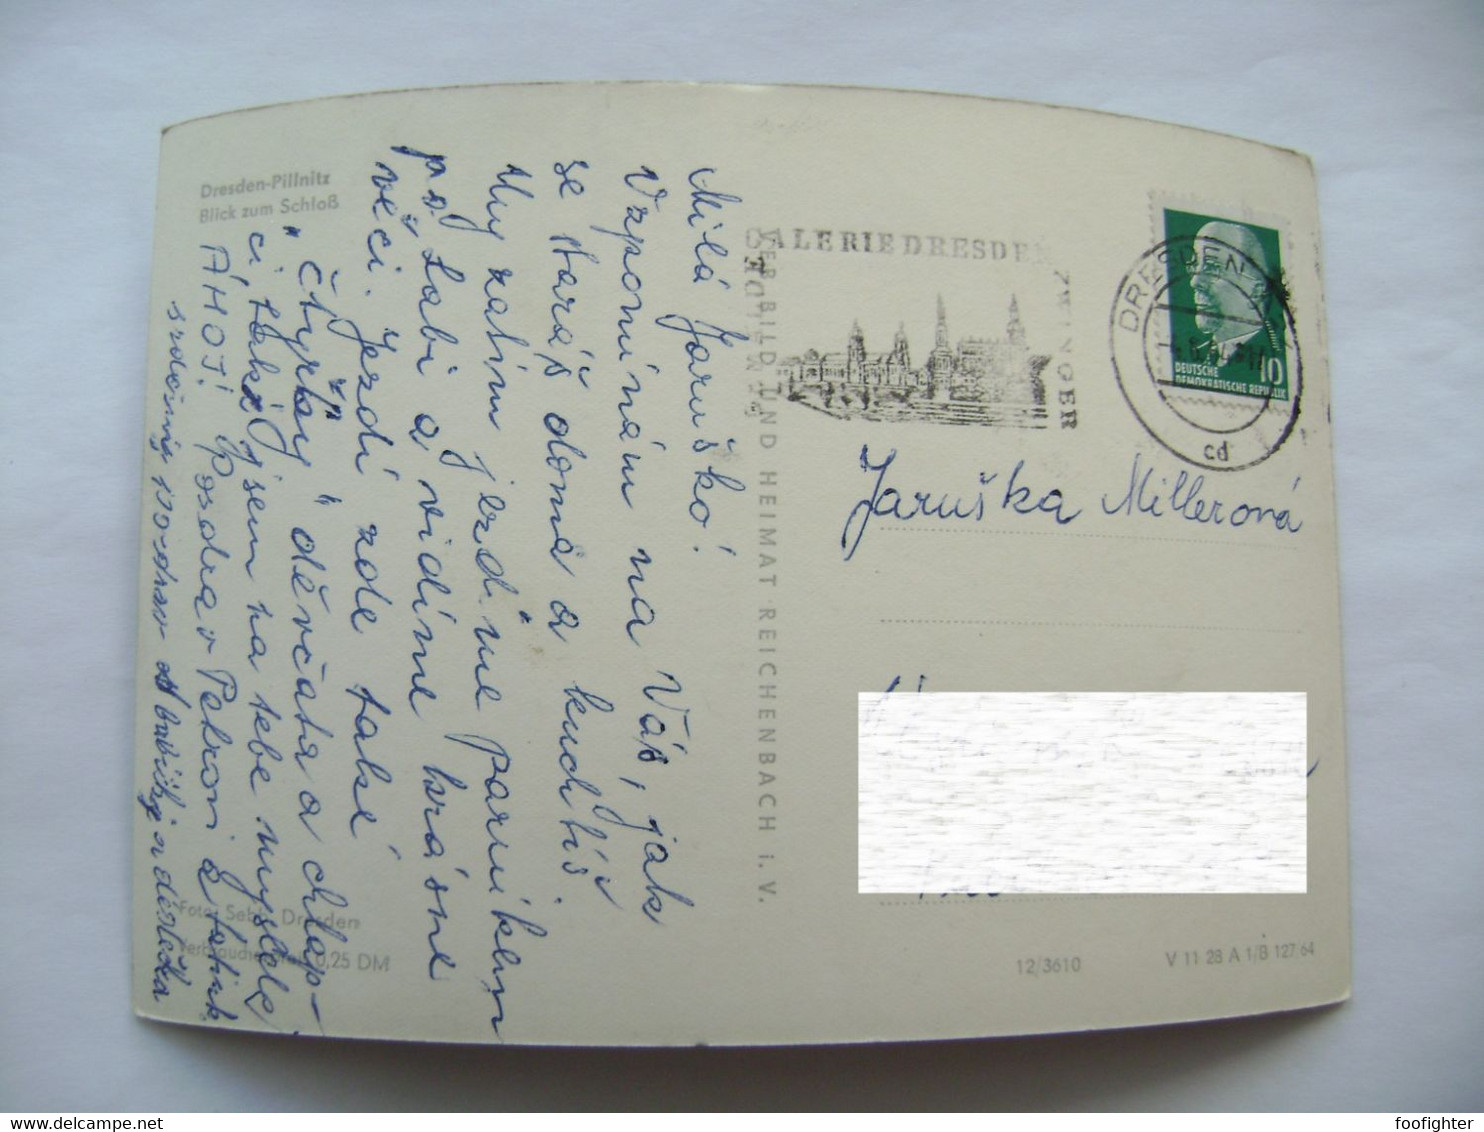 Dresden-Pillnitz
Blick zum Schloß
Milá Jaruško!
Vzpomínám na Vás, jak
se staráš doma a kudtíš.
My zatím jezdíme parníkem
po Labi a vidíme krásné
věci. Jezdí zde také
"čtyřtay" děvčata a chlap-
ci, takž jsem na tebe myslela,
ÁHOJ! Pozdrav Petrovi a
srdečný pozdrav babičky a dědečka
Foto: Sebb, Dresden
Verbraucherpreis 0,25 DM
DER BILD UND HEIMAT REICHENBACH i. V.
GALERIE DRESDEN
ZWINGER
DRESDEN
cd
10
DEUTSCHE
DEMOKRATISCHE REPUBLIK
Jaruška Millerová
12/3610
V 11 28 A 1/B 127/64
www.delcampe.net
foofighter